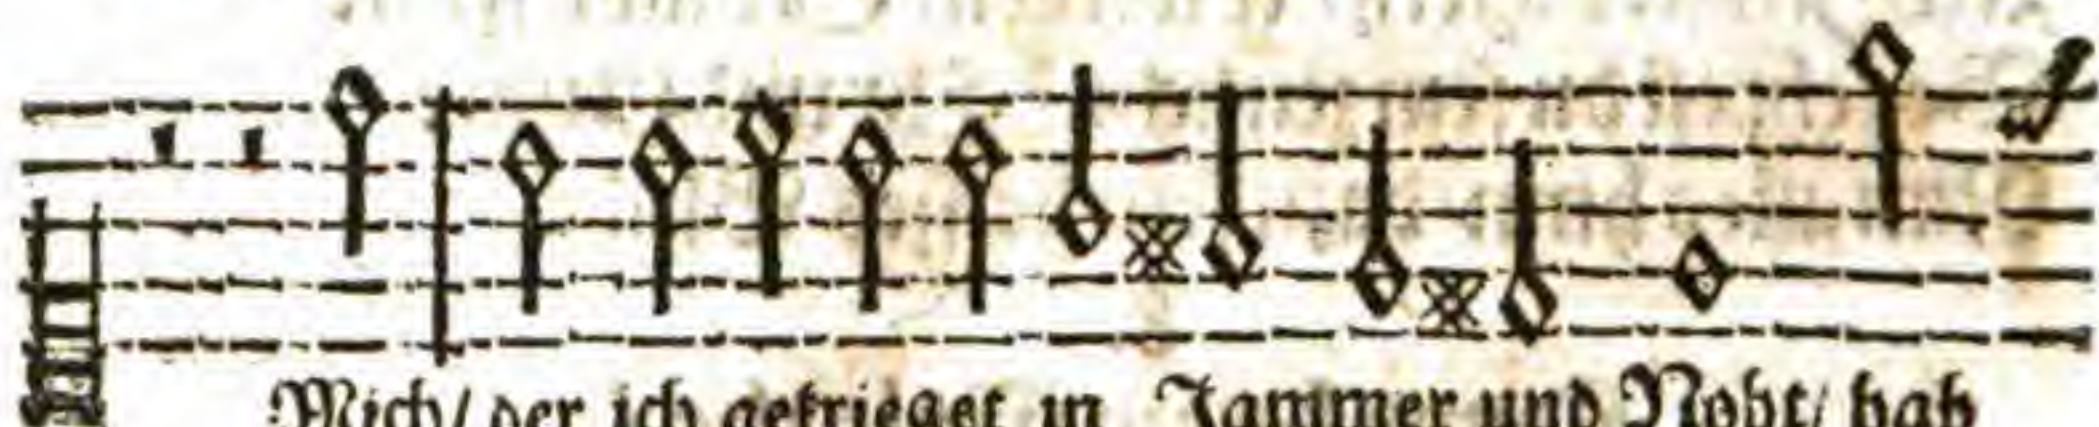 Mich/ der ich gekrieget in Jammer und Noht/ hab